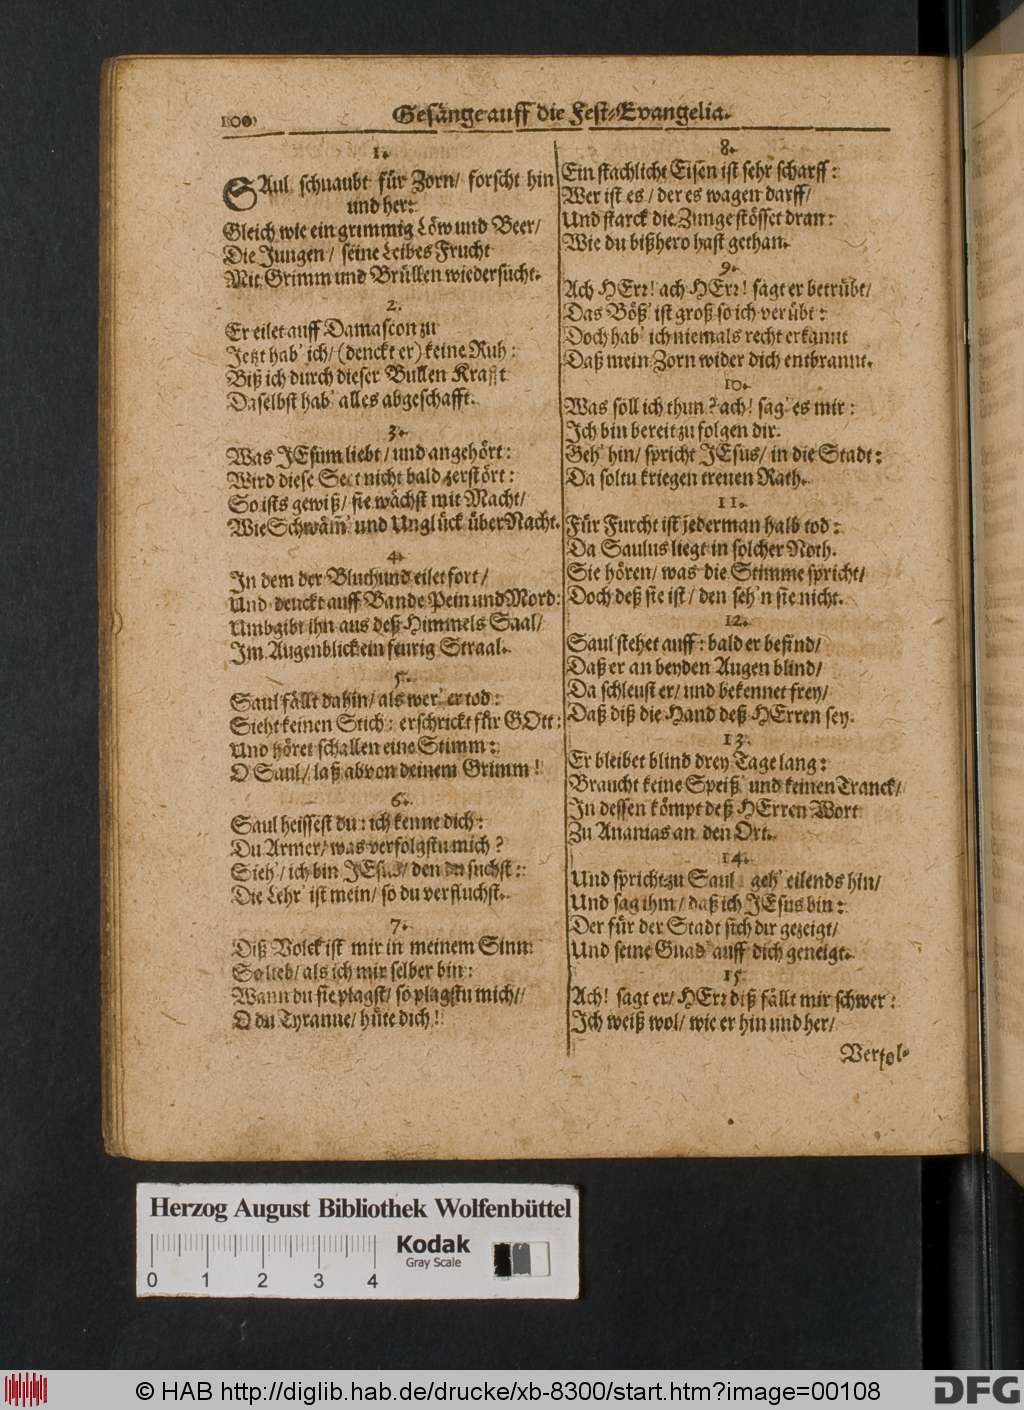 100
Gesänge auff die Fest-Evangelia.
1.
SAul schnaubt für Zorn/ forscht hin
und her:
Gleich wie ein grimmig Löw und Beer/
Die Jungen/ seine Leibes Frucht
Mit Grimm und Brüllen wiedersucht.
2.
Er eilet auff Damascon zu
Jetzt hab' ich/ (denckt er) keine Ruh:
Biß ich durch dieser Bullen Krafft
Daselbst hab' alles abgeschafft.
3.
Was JEsum liebt/ und angehört:
Wird diese Sect nicht bald zerstört:
So ists gewiß/ sie wächst mit Macht/
Wie Schwäm̃' und Unglück über Nacht.
4.
In dem der Bluthund eilet fort/
Und denckt auff Bande Pein und Mord:
Umbgibt ihn aus deß Himmels Saal/
Im Augenblick ein feurig Straal.
5.
Saul fällt dahin/ als wer' er tod:
Sieht keinen Stich: erschrickt für GOtt:
Und höret schallen eine Stimm:
O Saul/ laß ab von deinem Grimm!
6.
Saul heissest du: ich kenne dich:
Du Armer/ was verfolgstu mich?
Sieh'/ ich bin JEsus/ den du suchst:
Die Lehr' ist mein/ so du verfluchst.
7.
Diß Volck ist mir in meinem Sinn
So lieb/ als ich mir selber bin:
Wann du sie plagst/ so plagstu mich/
O du Tyranne/ hüte dich!
8.
Ein stachlicht Eisen ist sehr scharff:
Wer ist es/ der es wagen darff/
Und starck die Zunge stösset dran:
Wie du bißhero hast gethan.
9.
Ach HErr! ach HErr! sagt er betrübt/
Das Böß' ist groß so ich verübt:
Doch hab' ich niemals recht erkannt
Daß mein Zorn wider dich entbrannt.
10.
Was soll ich thun? ach! sag' es mir:
Ich bin bereit zu folgen dir.
Geh' hin/ spricht JEsus/ in die Stadt:
Da soltu kriegen treuen Rath.
11.
Für Furcht ist jederman halb tod:
Da Saulus liegt in solcher Noth.
Sie hören/ was die Stimme spricht/
Doch deß sie ist/ den seh'n sie nicht.
12.
Saul stehet auff: bald er befind/
Daß er an beyden Augen blind/
Da schleust er/ und bekennet frey/
Daß diß die Hand deß HErren sey.
13.
Er bleibet blind drey Tage lang:
Braucht keine Speiß' und keinen Tranck/
In dessen kömpt deß HErren Wort
Zu Ananias an den Ort.
14.
Und spricht zu Saul geh' eilends hin/
Und sag ihm/ daß ich JEsus bin:
Der für der Stadt sich dir gezeigt/
Und seine Gnad' auff dich geneigt.
15
Ach! sagt er/ HErr diß fällt mir schwer:
Ich weiß wol/ wie er hin und her/
Verfol-
Herzog August Bibliothek Wolfenbüttel
Kodak
Gray Scale
0 1 2 3 4
© HAB http://diglib.hab.de/drucke/xb-8300/start.htm?image=00108
DFG